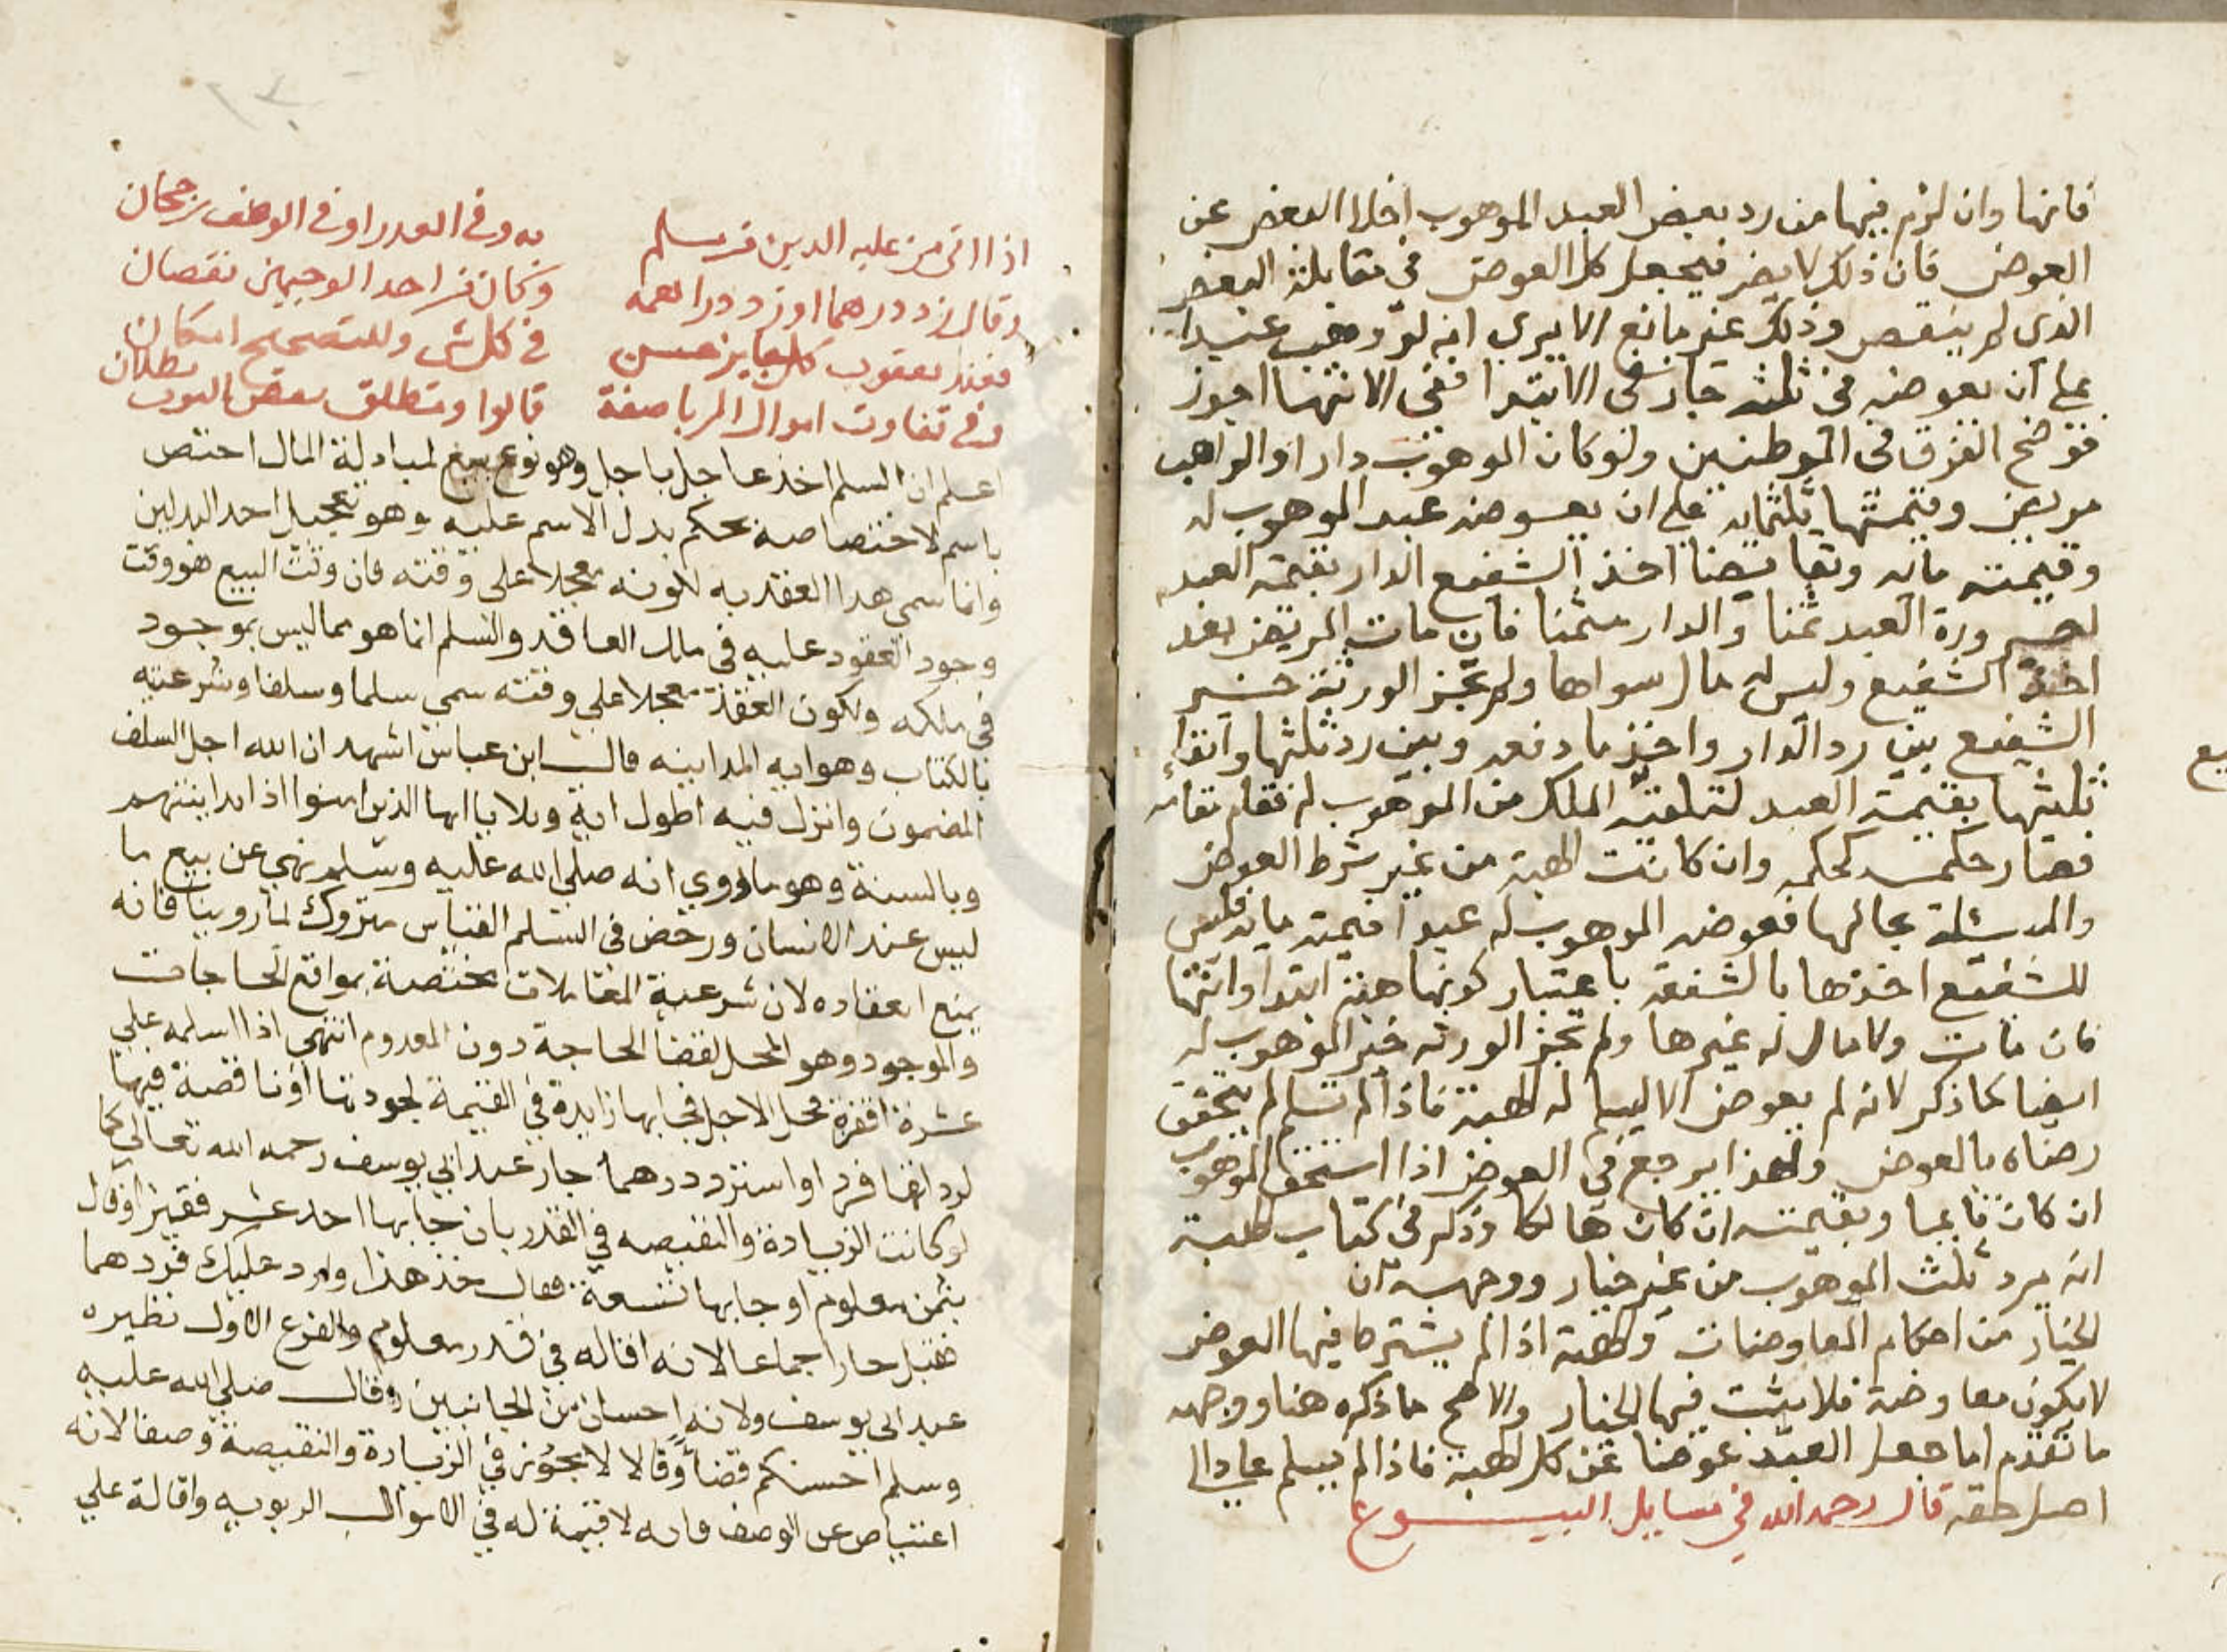 فانها وان لزم فيها من رد بعض العبد الموهوب اخلا البعض عن
العوض فان ذلك لا يضر فيجعل كل العوض في مقابلة البعض
الذي لم ينقص وذلك غير مانع الا يري انه لو وهب عبدا
علي ان يعوضه في ثلثه جاز في الابتدا ففي الانتها اجوز
فوضح الفرق في الموطنين ولو كان الموهوب دارا والواهب
مريض وقيمتها ثلثمايه علي ان يعوضه عبد الموهوب له
وقيمته مايه وتقابضنا اخذ الشفيع الدار بقيمة العبد
لصيرورة العبد ثمنا والدار مثمنا فان مات المريض بعد
اخذ الشفيع وليس له مال سواها ولم تجز الورثة خير
الشفيع بين رد الدار واخذ ما دفع وبين رد ثلثها وابقاء
ثلثيها بقيمة العبد لتلقيه الملك من الموهوب له فقام مقامه
فصار حكمه كحكمه وان كانت الهبة من غير شرط العوض
والمسئلة بحالها فعوضه الموهوب له عبدا قيمته مايه فليس
للشفيع اخذها بالشفعة باعتبار كونها هبة ابتدا وانتها
فان مات ولا مال له غيرها ولم تجز الورثه خير الموهوب له
ايضا لما ذكر لانه لم يعوض الا ليسلم له الهبة فاذا لم تسلم لم يتحقق
رضاه بالعوض ولهذا يرجع في العوض اذا استحق الموهوب
ان كان قايما وبقيمته ان كان هالكا وذكر في كتاب الهبة
انه يرد ثلث الموهوب من غير خيار ووجهه ان
الخيار من احكام المعاوضات والهبة اذا لم يشترط فيها العوض
لا يكون معاوضة فلا يثبت فيها الخيار والاصح ما ذكره هنا ووجهه
ما تقدم اما جعل العبد عوضا عن كل الهبة فاذا لم يسلم عاد الي
اصل حقه قال رحمه الله في مسايل البيوع
اذا اتي من عليه الدين في سلم به وفي القدر او في الوصف رجحان
وقال زد درهما او زد درا همه وكان في احد الوجهين نقصان
فعند يعقوب كل جايز حسن في كل شي وللتصحيح امكان
وفي تفاوت اموال الربا صفة قالوا ومتطلق بعض البوب بطلان
اعلم ان السلم اخذ عاجل باجل وهو نوع بيع لمبادلة المال اختص
باسم لاختصاصه بحكم بدل الاسم عليه وهو تعجيل احد البدلين
وانما سمي هذا العقد به لكونه معجلا علي وقته فان وقت البيع هو وقت
وجود المعقود عليه في ملك العاقد والسلم انما هو مما ليس بموجود
في ملكه ولكون العقد معجلا علي وقته سمي سلما وسلفا وشرعيته
بالكتاب وهو ايه المداينه قال ابن عباس اشهد ان الله اجل السلف
المضمون وانزل فيه اطول اية وتلا يا ايها الذين امنوا اذا تداينتم
وبالسنة وهو ما روي انه صلي الله عليه وسلم نهي عن بيع ما
ليس عند الانسان ورخص في السلم القياس متروك لما روينا فانه
يمنع انعقاده لان شرعية المعاملات مختصة بمواقع الحاجات
والموجود وهو المحل لقضا الحاجة دون المعدوم انتهي اذا اسلمه علي
عشرة اقفزة محل الاجل فجا بها زايدة في القيمة لجودتها او ناقصة فيها
لرداتها فرد او استرد درهما جاز عند ابي يوسف رحمه الله تعالي كما
لو كانت الزيادة والنقيصه في القدر بان جا بها احد عشر قفيزا وقال
بثمن معلوم او جا بها تسعة فقال خذ هذا وارد عليك فردهما
فقبل جاز اجماعا لانه اقاله في قدر معلوم والفرع الاول نظيره
عند ابي يوسف ولانه احسان من الجانبين وقال صلي الله عليه
وسلم احسنكم قضا وقالا لا يجوز في الزيادة والنقيصة وصفا لانه
اعتياض عن الوصف وانه لا قيمة له في الاموال الربويه واقالة علي